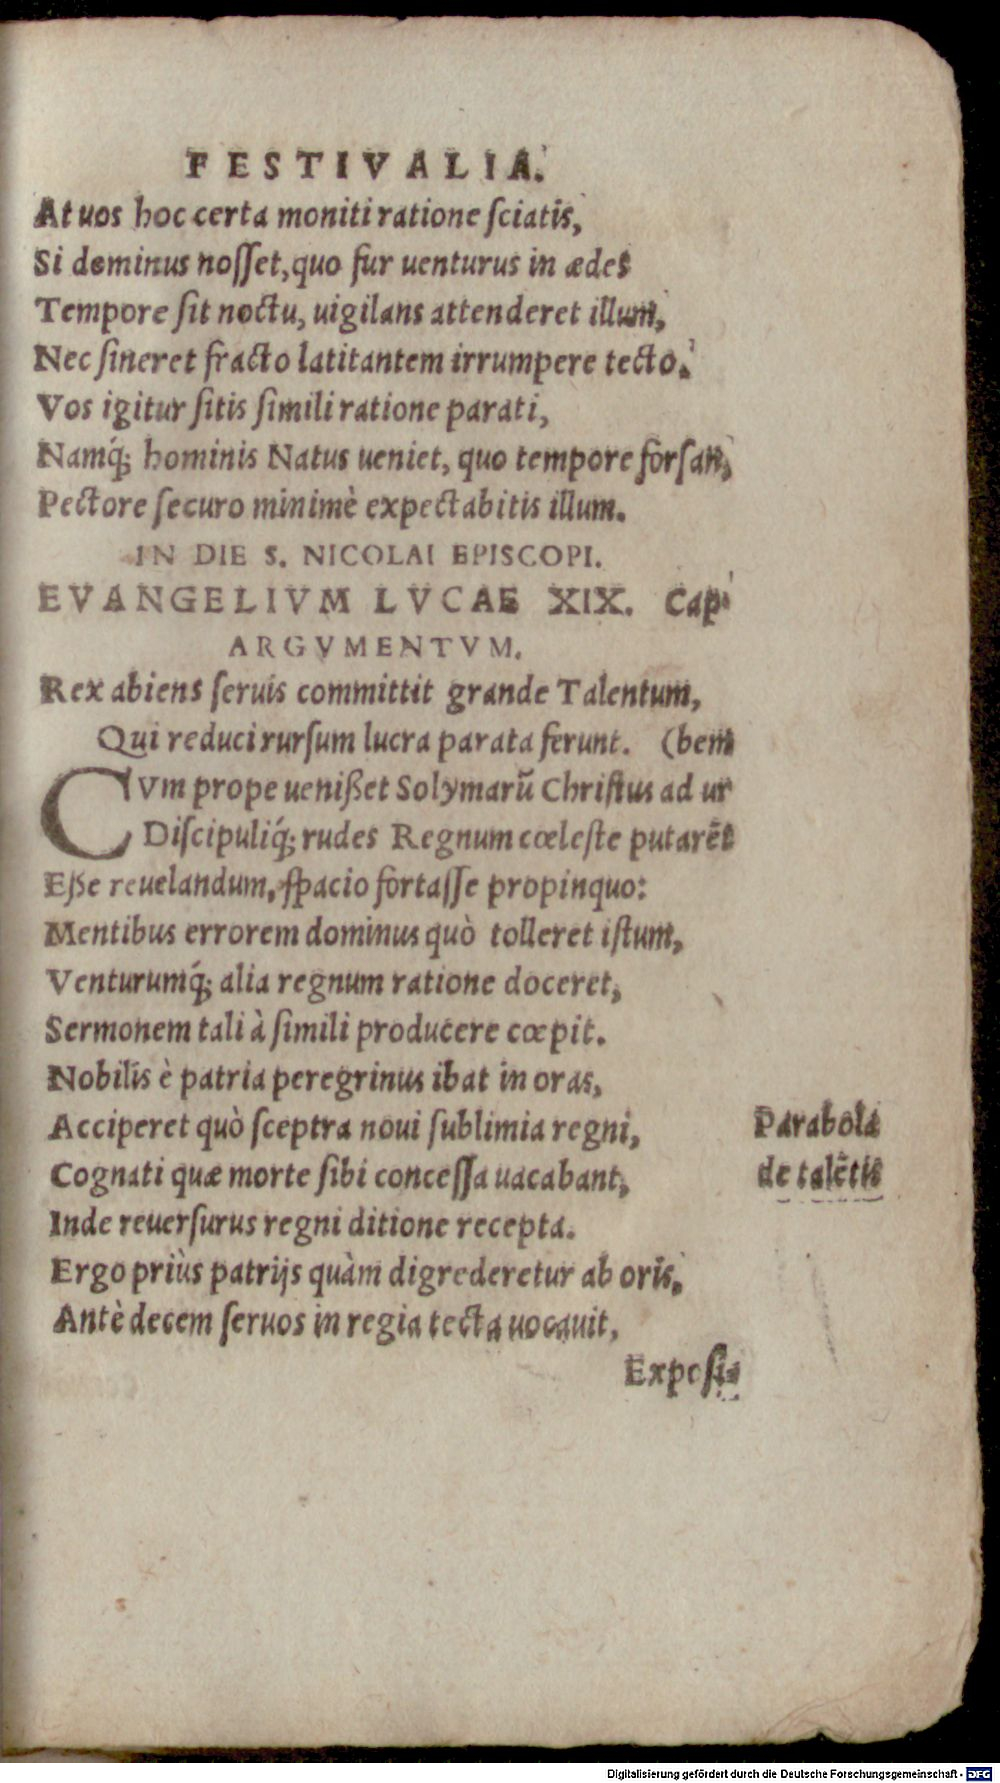 FESTIVALIA.
At uos hoc certa moniti ratione ſciatis,
Si dominus noſſet, quo fur uenturus in ædes
Tempore ſit noctu, uigilans attenderet illum,
Nec ſineret fracto latitantem irrumpere tecto.
Vos igitur ſitis ſimili ratione parati,
Namq́; hominis Natus ueniet, quo tempore forſan,
Pectore ſecuro minimè expectabitis illum.
IN DIE S. NICOLAI EPISCOPI.
EVANGELIVM LVCAE XIX. Cap
ARGVMENTVM.
Rex abiens ſeruis committit grande Talentum,
Qui reduci rurſum lucra parata ferunt. (bem
CVm prope uenißet Solymarũ Chriſtus ad ur
Diſcipuliq́; rudes Regnum cœleſte putarẽt
Eße reuelandum, ſpacio fortaſſe propinquo:
Mentibus errorem dominus quò tolleret iſtum,
Venturumq́; alia regnum ratione doceret,
Sermonem tali à ſimili producere cœpit.
Nobilis è patria peregrinus ibat in oras,
Acciperet quò ſceptra noui ſublimia regni,
Parabola
Cognati quæ morte ſibi conceſſa uacabant,
de talẽtis
Inde reuerſurus regni ditione recepta.
Ergo priùs patrijs quàm digrederetur ab oris,
Antè decem ſeruos in regia tecta uocauit,
Expoſi-
Digitalisierung gefördert durch die Deutsche Forschungsgemeinschaft - DFG